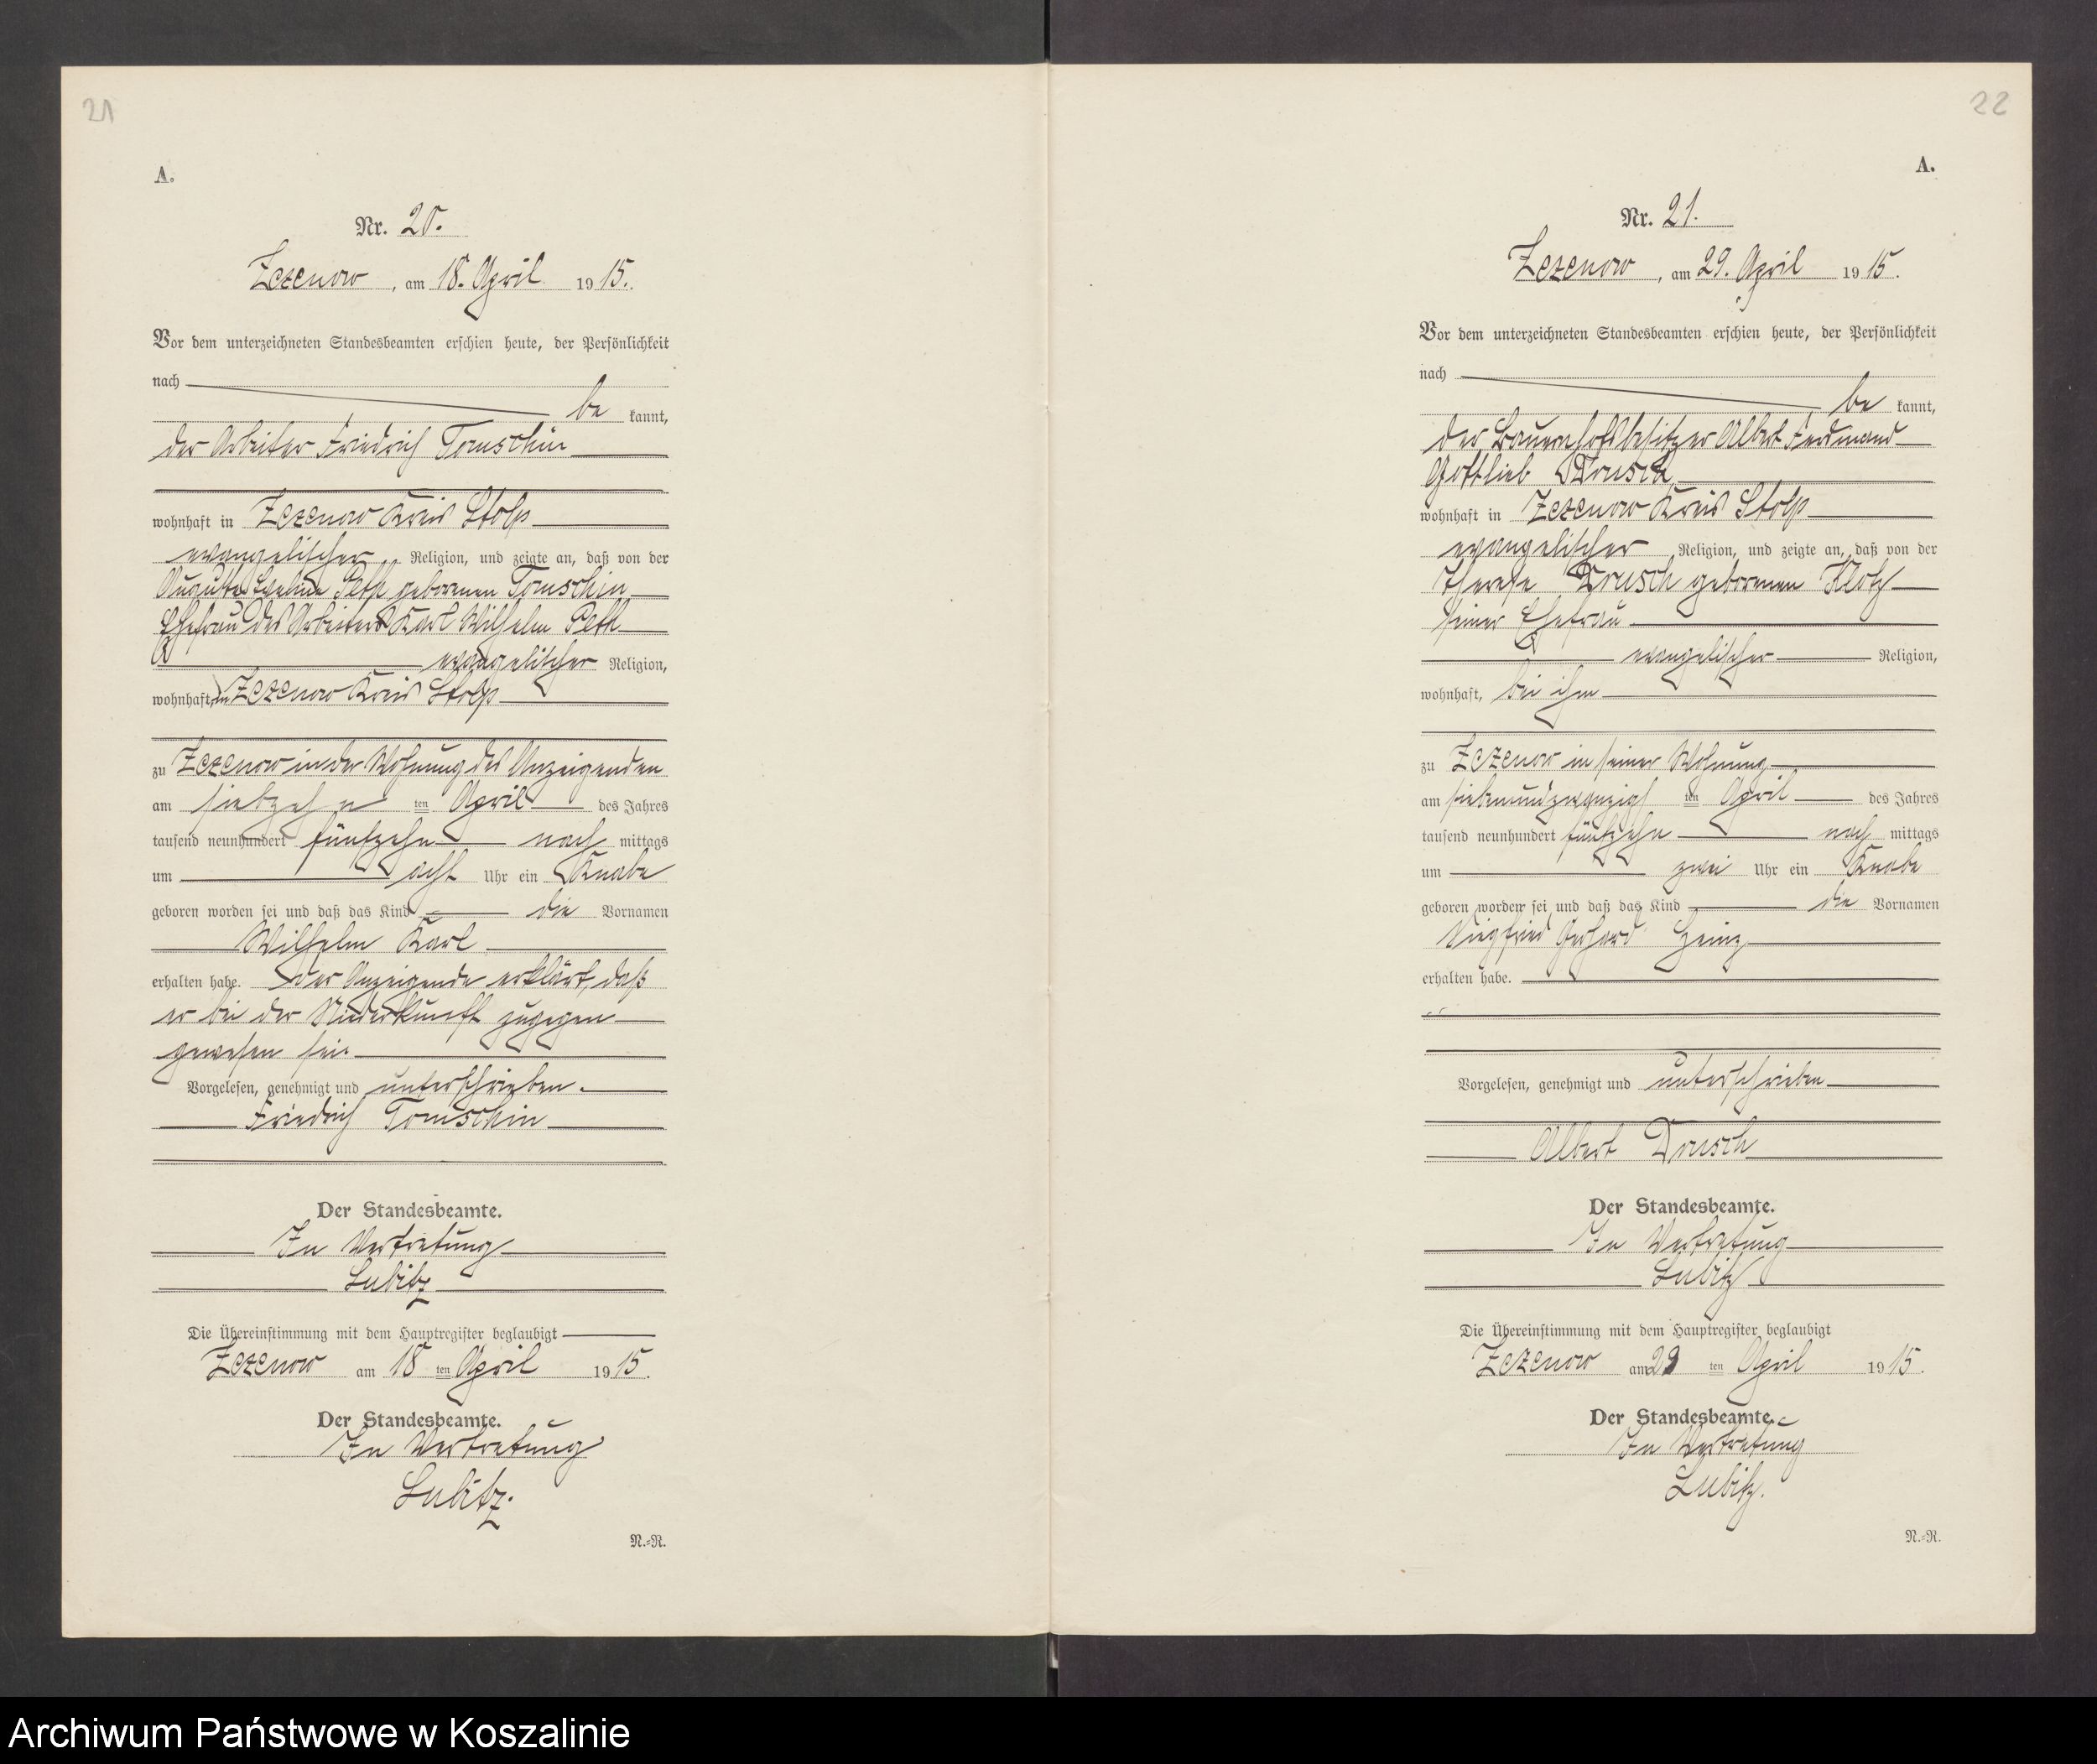 21
A.
Nr. 20.
Zezenow, am 18. April 1915.
Vor dem unterzeichneten Standesbeamten erschien heute, der Persönlichkeit
nach
be kannt,
der Arbeiter Friedrich Tomschin
wohnhaft in Zezenow Kreis Stolp
evangelischer Religion, und zeigte an, daß von der
Auguste Peth geborenen Tomschin
Ehefrau des Arbeiters Karl Wilhelm Peth
evangelischer Religion,
wohnhaft, in Zezenow Kreis Stolp
zu Zezenow in der Wohnung des Anzeigenden
am siebzehn ten April des Jahres
tausend neunhundert fünfzehn nach mittags
um acht Uhr ein Knabe
geboren worden sei und daß das Kind die Vornamen
Wilhelm Karl
erhalten habe. Der Anzeigende erklärt, daß
er bei der Niederkunft zugegen
gewesen sei.
Vorgelesen, genehmigt und unterschrieben.
Friedrich Tomschin
Der Standesbeamte.
In Vertretung
Lubitz
Die Übereinstimmung mit dem Hauptregister beglaubigt
Zezenow am 18 ten April 1915.
Der Standesbeamte.
In Vertretung
Lubitz.
N.=R.
22
A.
Nr. 21.
Zezenow, am 29. April 1915.
Vor dem unterzeichneten Standesbeamten erschien heute, der Persönlichkeit
nach
be kannt,
der Bauernhofsbesitzer Albert Ferdinand
Gottlieb Drusch
wohnhaft in Zezenow Kreis Stolp
evangelischer Religion, und zeigte an, daß von der
Therese Drusch geborenen Klotz
seiner Ehefrau
evangelischer Religion,
wohnhaft, bei ihm
zu Zezenow in seiner Wohnung
am siebenundzwanzigs ten April des Jahres
tausend neunhundert fünfzehn nach mittags
um zwei Uhr ein Knabe
geboren worden sei und daß das Kind die Vornamen
Siegfried Gerhard Heinz
erhalten habe.
Vorgelesen, genehmigt und unterschrieben
Albert Drusch
Der Standesbeamte.
In Vertretung
Lubitz
Die Übereinstimmung mit dem Hauptregister beglaubigt
Zezenow am 29 ten April 1915.
Der Standesbeamte.
In Vertretung
Lubitz.
N.=R.
Archiwum Państwowe w Koszalinie